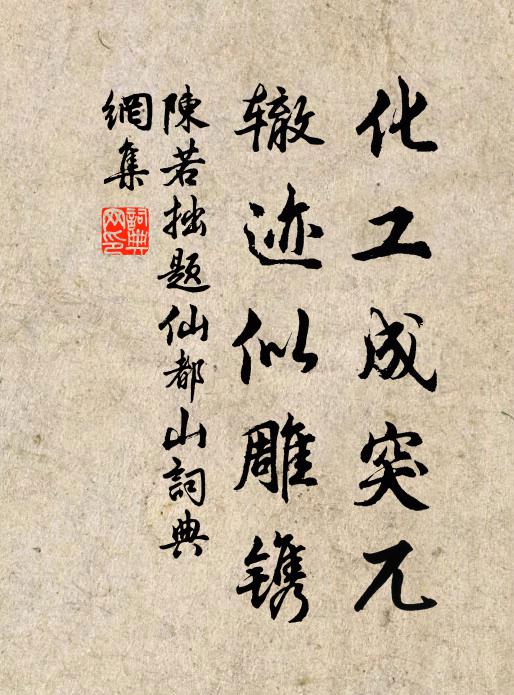 化工成突兀
辙迹似雕镌
陳若拙题仙都山詞典
網集
詞典
网印